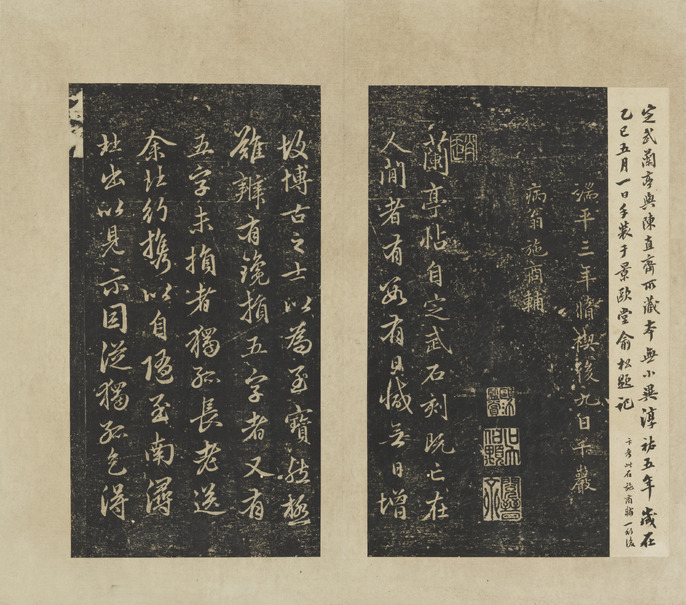 定武蘭亭與陳直齋所藏本無小異淳祐五年歲在
乙巳五月一日手裝于景歐堂俞松題記
卞考此在施商輔一跋後
端平三年脩禊後九日千巖
病翁施商輔
蘭亭帖自定武石刻既亡在
人間者有數有日減無日增
故博古之士以為至寶然極
難辨有鐫損五字者又有
五字未損者獨孤長老送
余北行攜以自隨至南潯
北出以見示因從獨孤乞得